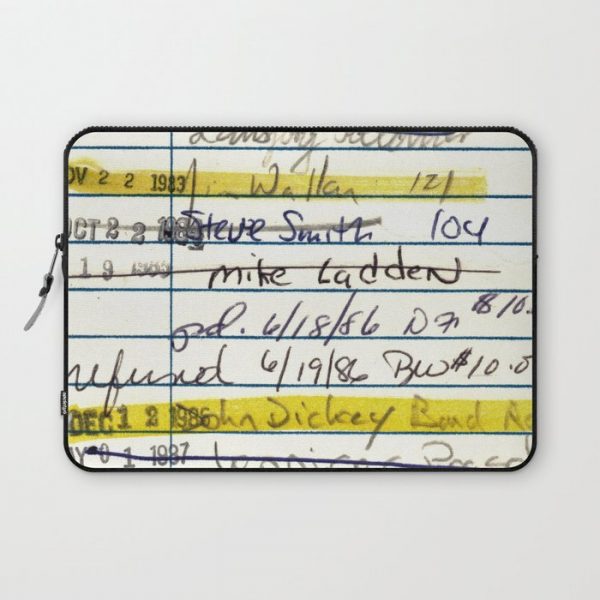 OV 2 2 1983 Jim Wallan 121
OCT 2 2 Steve Smith 104
1 9 mike Ladden
pd. 6/18/86 $10.
refund 6/19/86 BW $10.0
DEC 1 2 1986 John Dickey Band
Y 0 1 1987